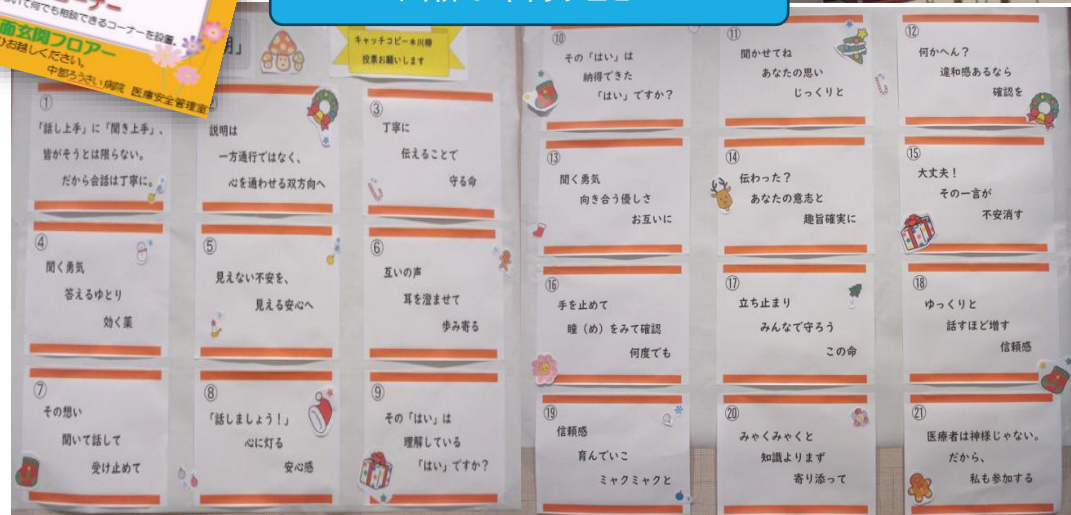 コーナー
いて何でも相談できるコーナーを設置。
面玄関フロアー
お越しください。
中部ろうさい病院 医療安全管理室
明」
キャッチコピー＊川柳
投票お願いします
①
「話し上手」に「聞き上手」、
皆がそうとは限らない。
だから会話は丁寧に。
説明は
一方通行ではなく、
心を通わせる双方向へ
③
丁寧に
伝えることで
守る命
④
聞く勇気
答えるゆとり
効く薬
⑤
見えない不安を、
見える安心へ
⑥
互いの声
耳を澄ませて
歩み寄る
⑦
その想い
聞いて話して
受け止めて
⑧
「話しましょう！」
心に灯る
安心感
⑨
その「はい」は
理解している
「はい」ですか？
⑩
その「はい」は
納得できた
「はい」ですか？
⑪
聞かせてね
あなたの思い
じっくりと
⑫
何かへん？
違和感あるなら
確認を
⑬
聞く勇気
向き合う優しさ
お互いに
⑭
伝わった？
あなたの意志と
趣旨確実に
⑮
大丈夫！
その一言が
不安消す
⑯
手を止めて
瞳（め）をみて確認
何度でも
⑰
立ち止まり
みんなで守ろう
この命
⑱
ゆっくりと
話すほど増す
信頼感
⑲
信頼感
育んでいこ
ミャクミャクと
⑳
みゃくみゃくと
知識よりまず
寄り添って
㉑
医療者は神様じゃない。
だから、
私も参加する